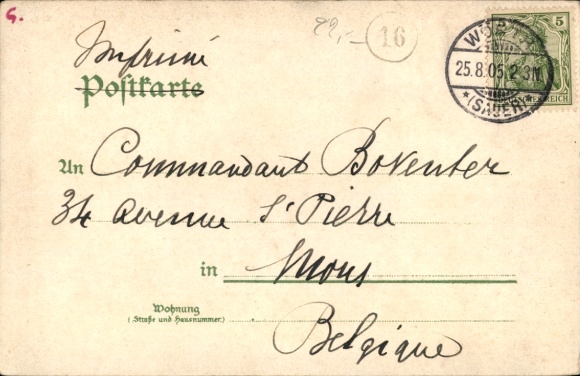 G.
22,-
16
Imprimé
Postkarte
WÖRTH
25.8.05. 2-3N.
*(SAUER)*
5
REICH
An Commandant Boventer
34 Avenue St Pierre
in Mons
Wohnung
(Straße und Hausnummer)
Belgique